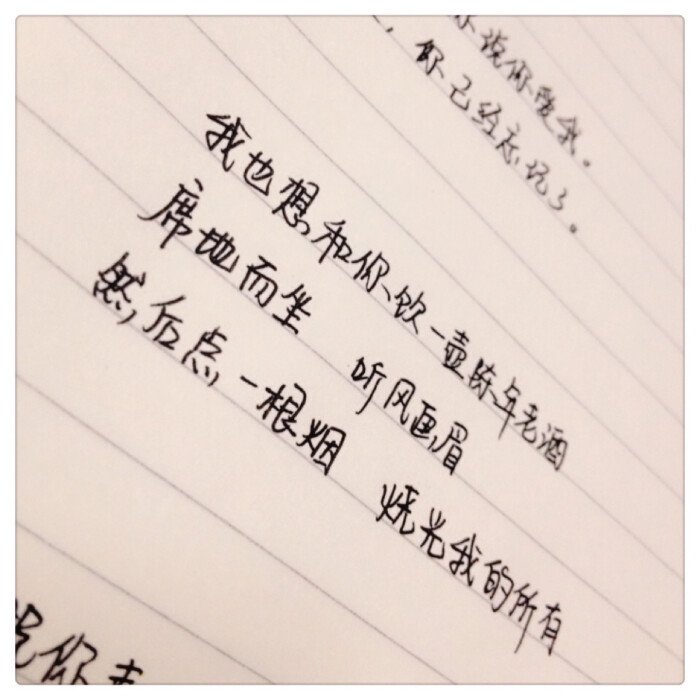 你说你爱我。
，你已经忘记了。
我也想和你饮一壶陈年老酒
席地而坐 听风画眉
然后点一根烟 烧光我的所有
说你